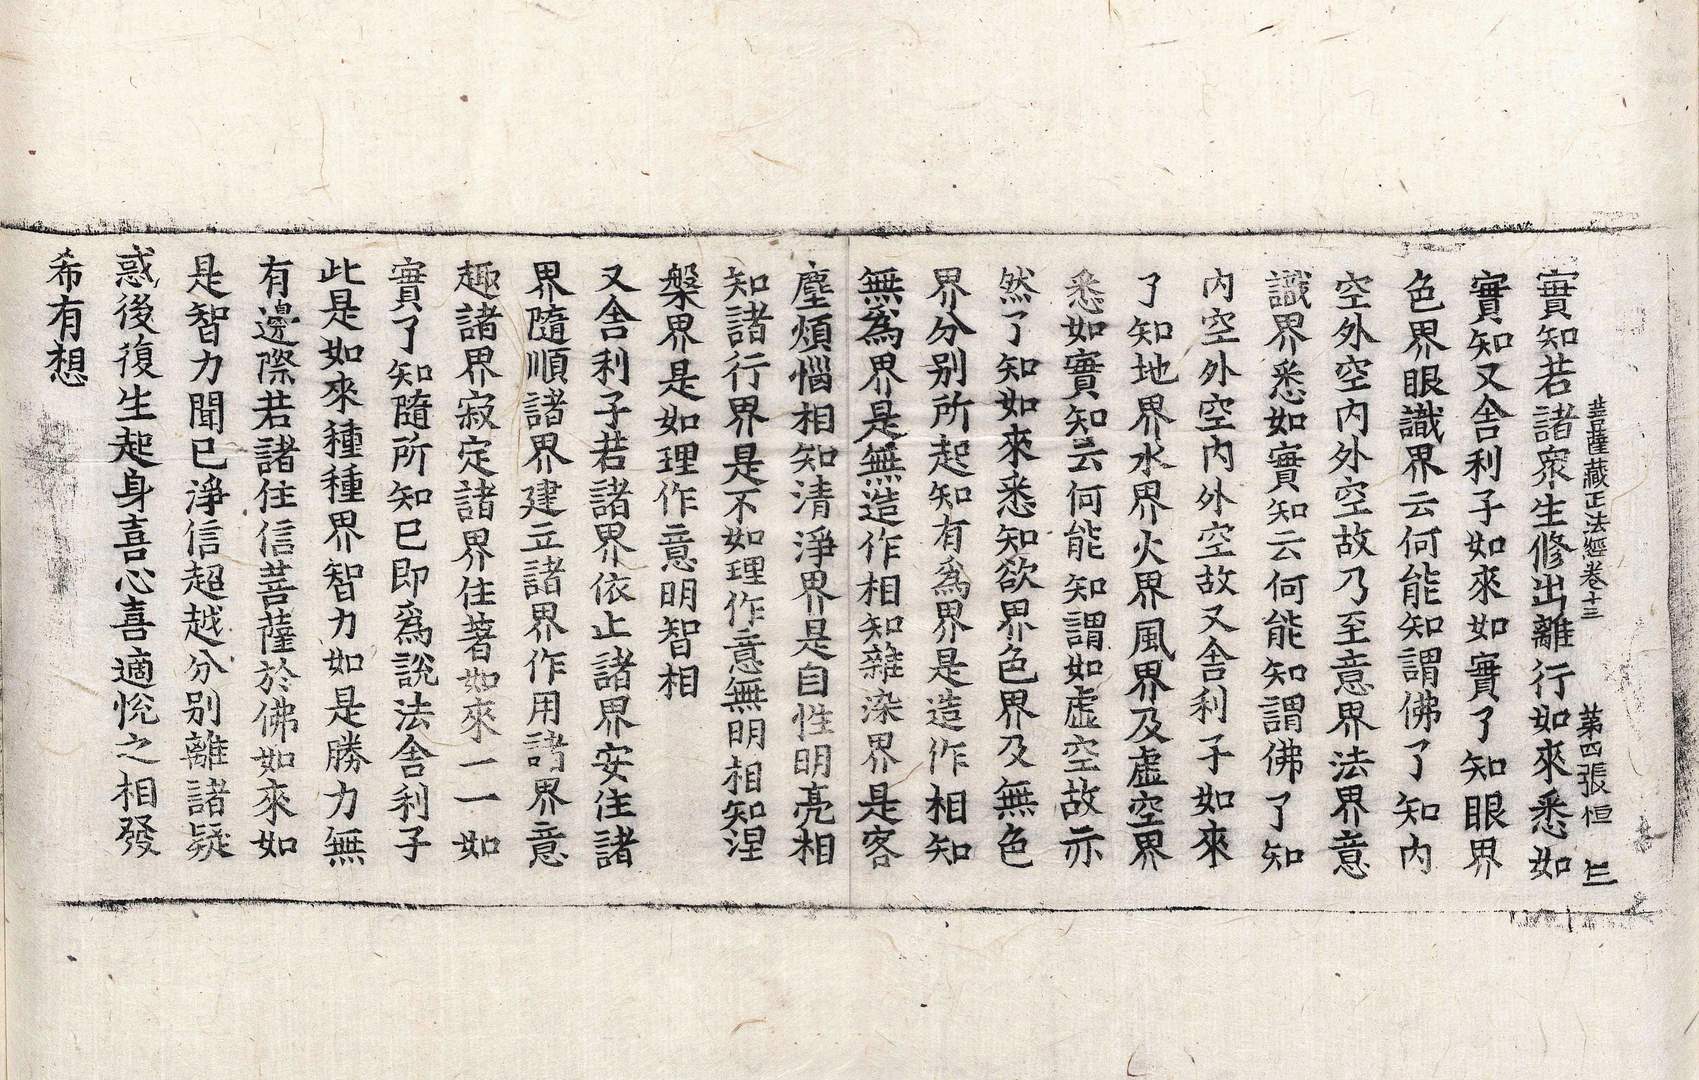 菩薩藏正法經卷十三 第四張 恒
實知若諸衆生修出離行如來悉如
實知又舍利子如來如實了知眼界
色界眼識界云何能知謂佛了知内
空外空内外空故乃至意界法界意
識界悉如實知云何能知謂佛了知
内空外空内外空故又舍利子如來
了知地界水界火界風界及虛空界
悉如實知云何能知謂如虛空故亦
然了知如來悉知欲界色界及無色
界分别所起知有爲界是造作相知
無爲界是無造作相知雜染界是客
塵煩惱相知清淨界是自性明亮相
知諸行界是不如理作意無明相知涅
槃界是如理作意明智相
又舍利子若諸界依止諸界安住諸
界隨順諸界建立諸界作用諸界意
趣諸界寂定諸界住著如來一一如
實了知隨所知已即爲說法舍利子
此是如來種種界智力如是勝力無
有邊際若諸住信菩薩於佛如來如
是智力聞已淨信超越分别離諸疑
惑後復生起身喜心喜適悅之相發
希有想